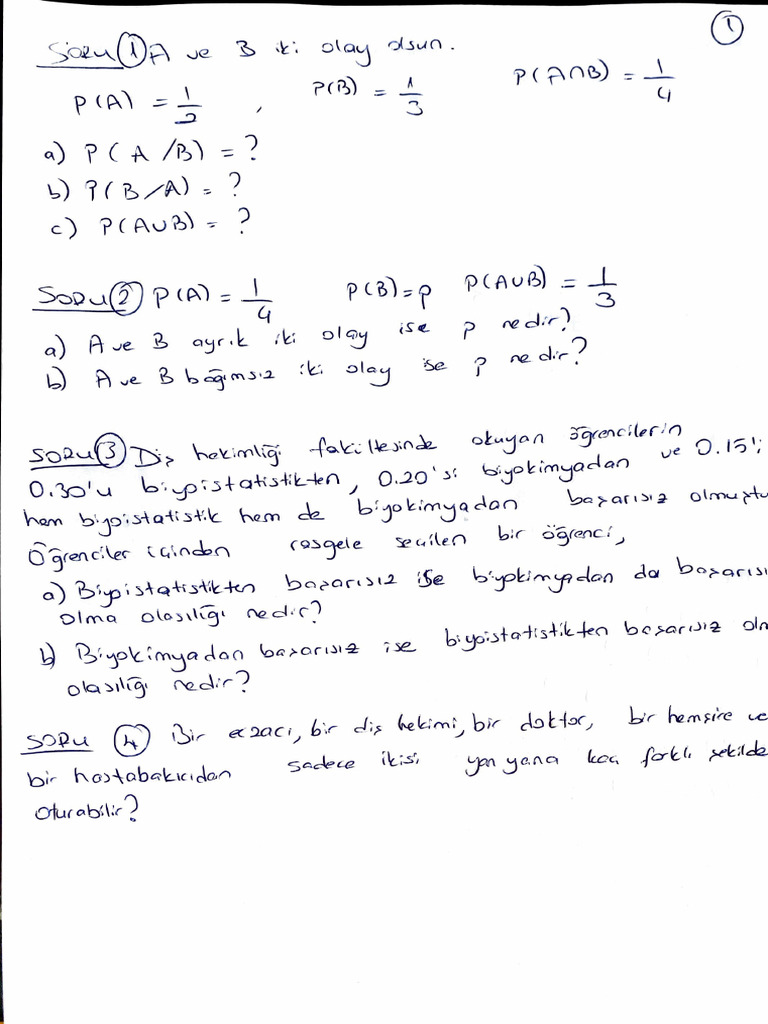 1
SORU 1 A ve B iki olay olsun.
P(A) = 1/2 , P(B) = 1/3 P(A∩B) = 1/4
a) P(A/B) = ?
b) P(B/A) = ?
c) P(A∪B) = ?
SORU 2 P(A) = 1/4 P(B)=p P(A∪B) = 1/3
a) A ve B ayrık iki olay ise p nedir?
b) A ve B bağımsız iki olay ise p nedir?
SORU 3 Diş hekimliği fakültesinde okuyan öğrencilerin
0.30'u biyoistatistikten, 0.20'si biyokimyadan ve 0.15'i
hem biyoistatistik hem de biyokimyadan başarısız olmuştu
Öğrenciler içinden rasgele seçilen bir öğrenci,
a) Biyoistatistikten başarısız ise biyokimyadan da başarısı
olma olasılığı nedir?
b) Biyokimyadan başarısız ise biyoistatistikten başarısız olm
olasılığı nedir?
SORU 4 Bir eczacı, bir diş hekimi, bir doktor, bir hemşire ve
bir hastabakıcıdan sadece ikisi yan yana kaç farklı şekilde
oturabilir?